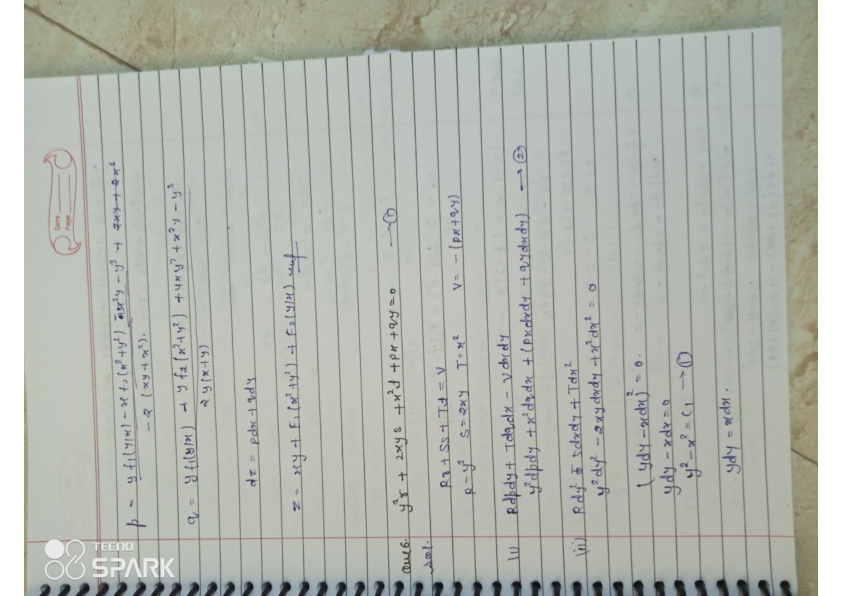 Date
Page
p = y f1(y/x) - x f2(x²+y²) - 3x²y - y³ + 2xy + 2x²
-2 (xy+x²).
q = y f1(y/x) + y f2(x²+y²) + 4xy² + x²y - y³
2y(x+y)
dz = pdx + qdy
z = xy + F1(x²+y²) + F2(y/x)
Ques. y²r + 2xys + x²t + px + qy = 0 → ①
Sol. Rr + Ss + Tt = V
R = y² S = 2xy T = x² V = -(px+qy)
(i) Rdpdy + Tdqdx - Vdxdy
y²dpdy + x²dqdx + (pxdxdy + qydxdy) → ②
(ii) Rdy² - Sdxdy + Tdx²
y²dy² - 2xydxdy + x²dx² = 0
(ydy - xdx)² = 0.
ydy - xdx = 0
y² - x² = c1 → ①
ydy = xdx.
TECNO
SPARK